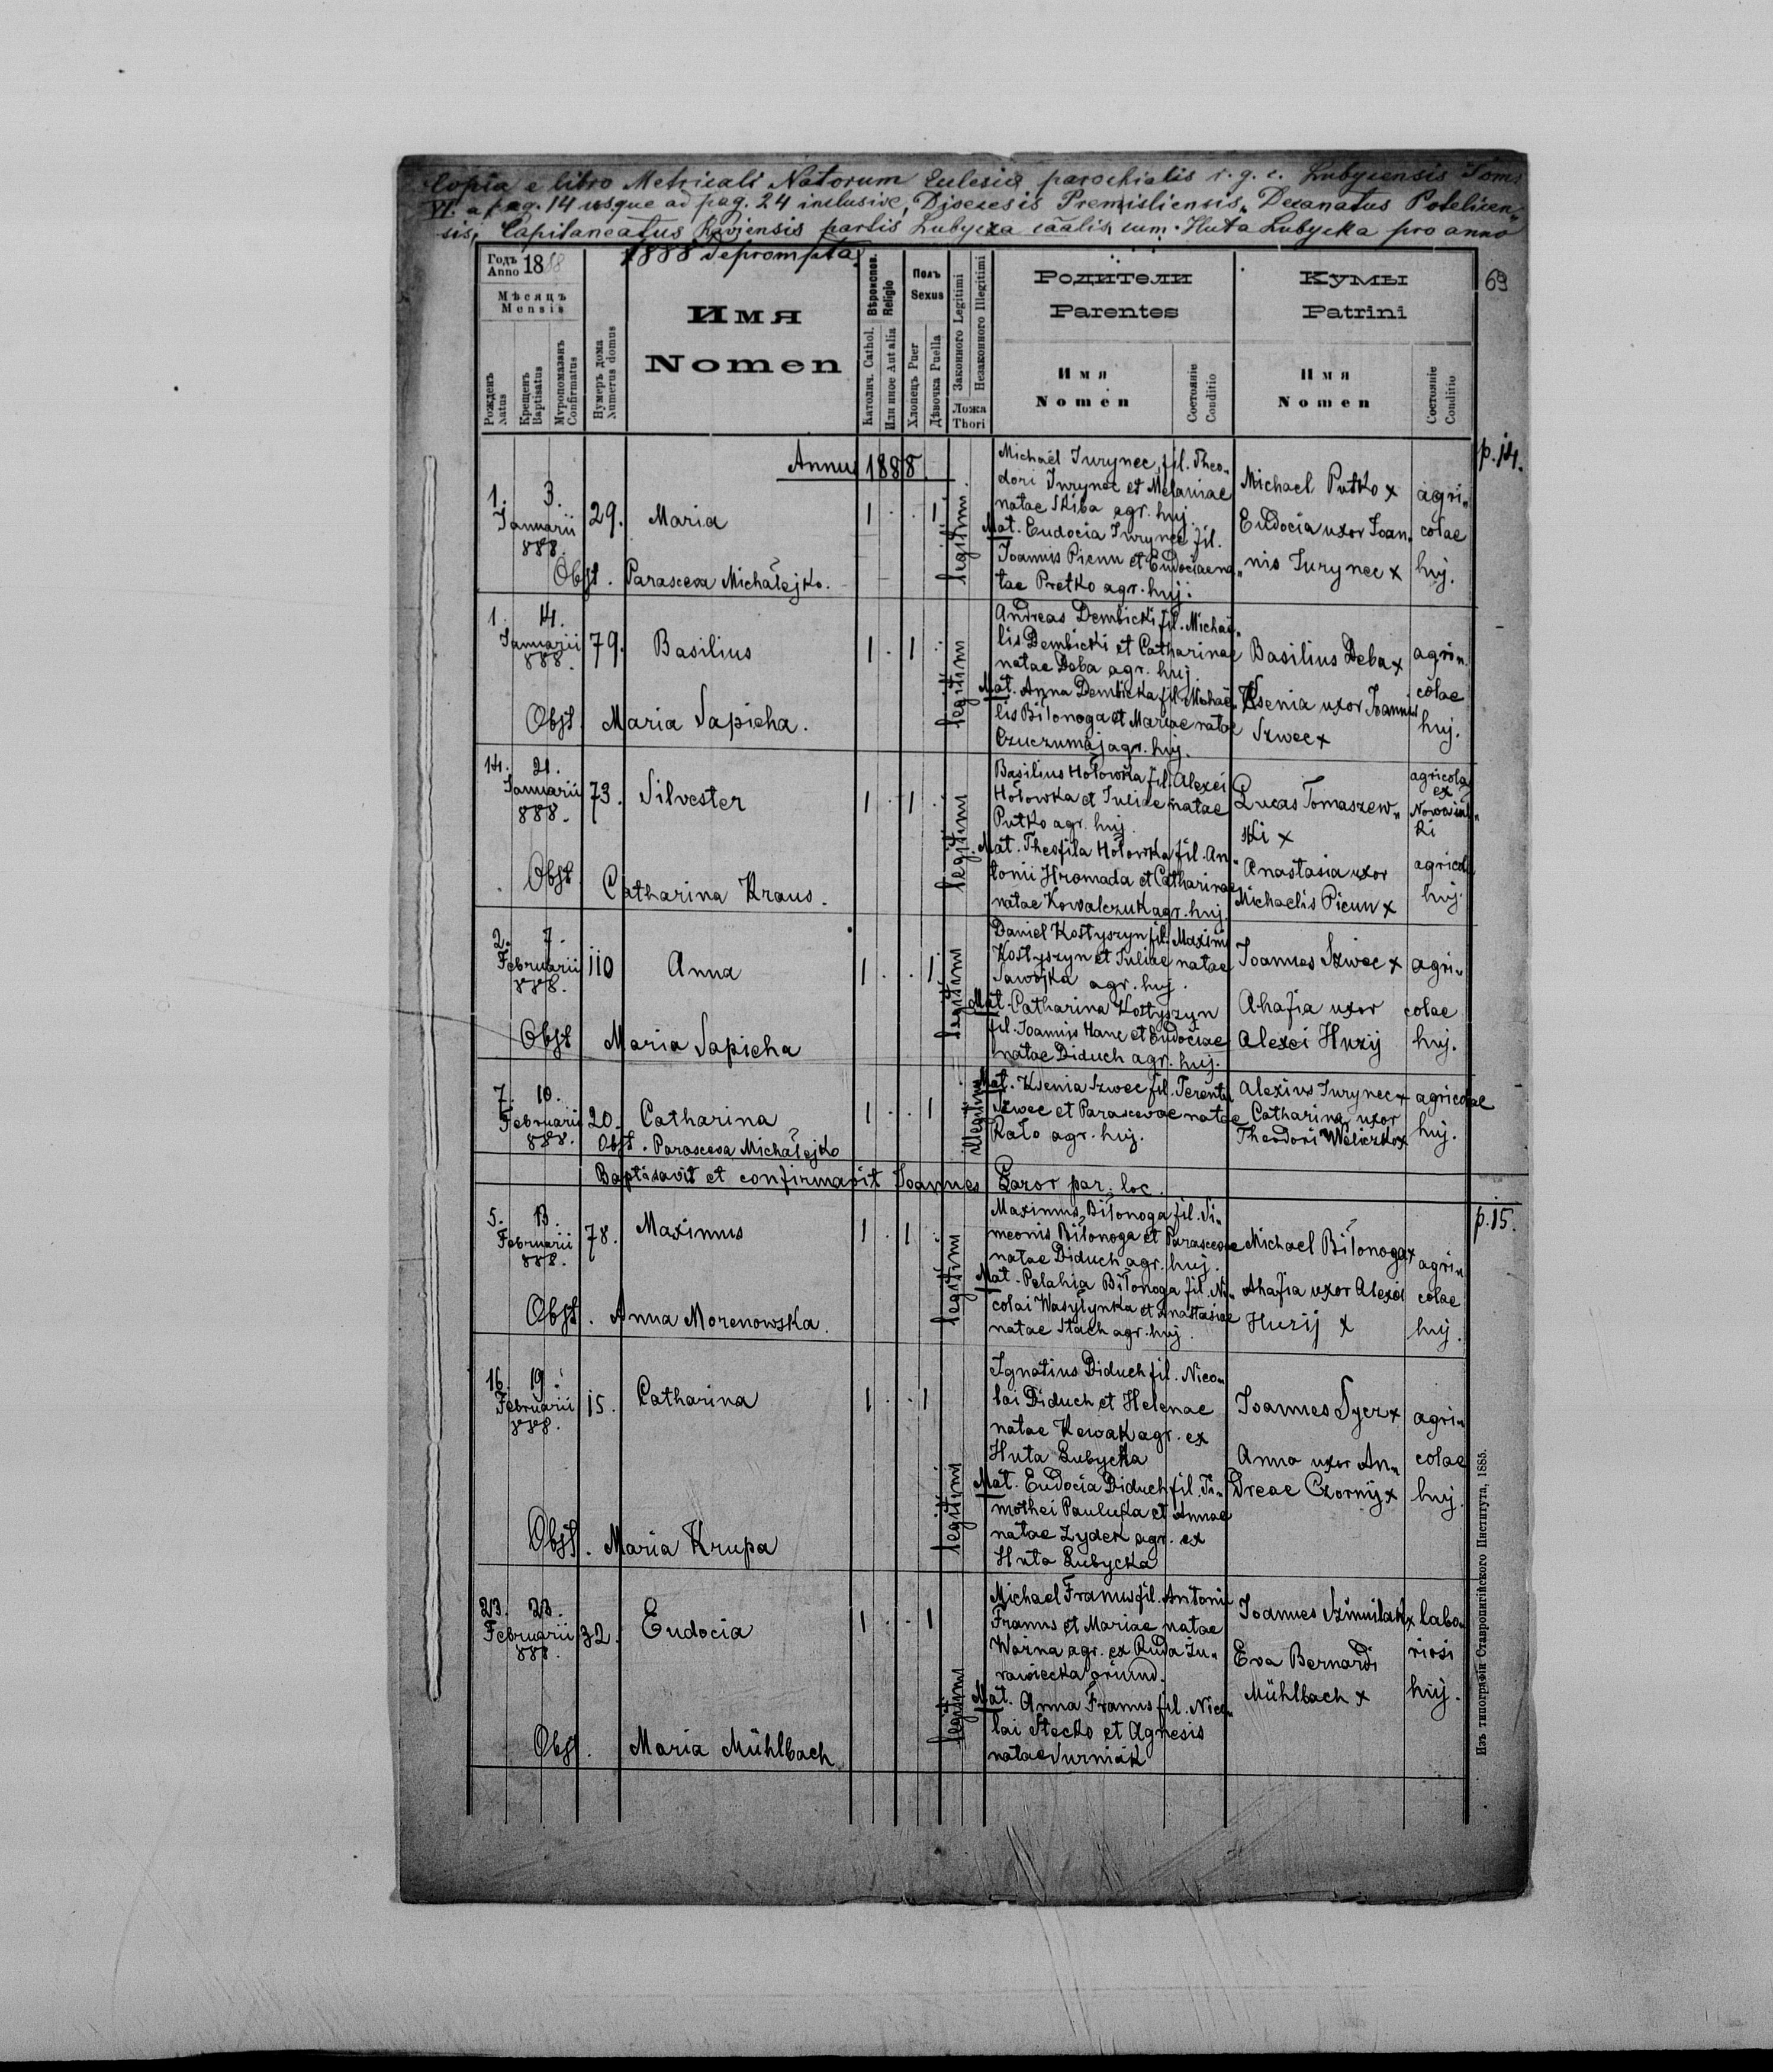 Copia e libro Metricali Natorum Eclesiae parochialis r. g. c. Lubycensis Tom:
VI. a pag. 14 usque ad pag. 24 inclusive, Diecesis Premisliensis, Decanatus Potelicen„
sis, Capitaneatus Raviensis partis Lubycza cãalis, cum Huta Lubycka pro anno
1888 deprompta.
69
Годъ
Anno 1888
Мѣсяцъ
Mensis
Рожденъ
Natus
Крещенъ
Baptisatus
Мѵропомазанъ
Confirmatus
Нумеръ дома
Numerus domus
Имя
Nomen
Вѣроиспов.
Religio
Католич. Cathol.
Или иное Aut alia
Полъ
Sexus
Хлопецъ Puer
Дѣвочка Puella
Законного Legitimi
Незаконного Illegitimi
Ложа
Thori
Родители
Parentes
Имя
Nomen
Состоянie
Conditio
Кумы
Patrini
Имя
Nomen
Состоянie
Conditio
p. 14.
Annus 1888.
1. 3.
Januarii
888.
29. Maria
1 . . 1
legitimi
Michaël Jurynec, fil. Theo„
dori Jurynec et Melaniae
natae Skiba agr. huj.
Mat. Eudocia Jurynec fil.
Joannis Picun et Eudociae na„
tae Pretko agr. huj.
Michael Putko x
Eudocia uxor Joan„
nis Jurynec x
agri„
colae
huj.
Obst. Parasceva Michałejko.
1. 4.
Januarii
888.
79. Basilius
1 . 1 .
legitimi
Andreas Dembicki fil. Michaë„
lis Dembicki et Catharinae
natae Deba agr. huj.
Mat. Anna Dembicka fil. Michaë„
lis Biłonoga et Mariae natae
Czuczumaj agr. huj.
Basilius Deba x
Ksenia uxor Joannis
Szwec x
agri„
colae
huj.
Obst. Maria Sapicha.
14. 21.
Januarii
888.
73. Silvester
1 . 1 .
legitimi
Basilius Hołowka fil. Alexei
Hołowka et Juliae natae
Putko agr. huj.
Mat. Theofila Hołowka fil. An„
tonii Hromada et Catharinae
natae Kowalczuk agr. huj.
Lucas Tomaszew„
ski x
Anastasia uxor
Michaelis Picun x
agricola
ex
ki
agricol
huj.
Obst. Catharina Kraus.
2. 7.
Februarii
888.
110 Anna
1 . . 1
legitimi
Daniel Kostyszyn fil. Maximi
Kostyszyn et Juliae natae
Sawojka agr. huj.
Mat. Catharina Kostyszyn
fil. Joannis Hanc et Eudociae
natae Diduch agr. huj.
Joannes Szwec x
Ahafia uxor
Alexei Huzij
agri„
colae
huj.
Obst Maria Sapicha
7. 10.
Februarii
888.
20. Catharina
1 . . 1
illegitimi
Mat. Ksenia Szwec fil. Terentii
Szwec et Parascevae natae
Rało agr. huj.
Alexius Jurynec x
Catharina uxor
Theodori Weliczko x
agricolae
huj.
Obst. Parasceva Michałejko
Baptisavit et confirmavit Joannes Łazor par. loc.
p. 15.
5. 13.
Februarii
888.
78. Maximus
1 . 1 .
legitimi
Maximus Biłonoga fil. Si„
meonis Biłonoga et Parascevae
natae Diduch agr. huj.
Mat. Pelahia Biłonoga fil. Ni„
colai Wasyłynka et Anastasiae
natae Stach agr. huj.
Michael Biłonoga x
Ahafia uxor Alexei
Huzij x
agri„
colae
huj.
Obst. Anna Morenowska.
16. 19.
Februarii
888.
15. Catharina
1 . . 1
legitimi
Ignatius Diduch fil. Nico„
lai Diduch et Helenae
natae Kowak agr. ex
Huta Lubycka
Mat. Eudocia Diduch fil. Ti„
mothei Pauluka et Annae
natae Zyder agr. ex
Huta Lubycka
Joannes Dycr x
Anna uxor An„
dreae Czornij x
agri„
colae
huj.
Obst. Maria Krupa
23. 23.
Februarii
888.
32. Eudocia
1 . . 1
legitimi
Michael Franus fil. Antonii
Franus et Mariae natae
Wojna agr. ex Ruda Żu„
rawiecka oriund.
Mat. Anna Franus fil. Nico„
lai Stecko et Agnesis
natae Surniak
Joannes Szmilak x
Eva Bernardi
Mühlbach x
labo„
riosi
huj.
Obst. Maria Mühlbach
Изъ типографіи Ставропигійского Института, 1885.